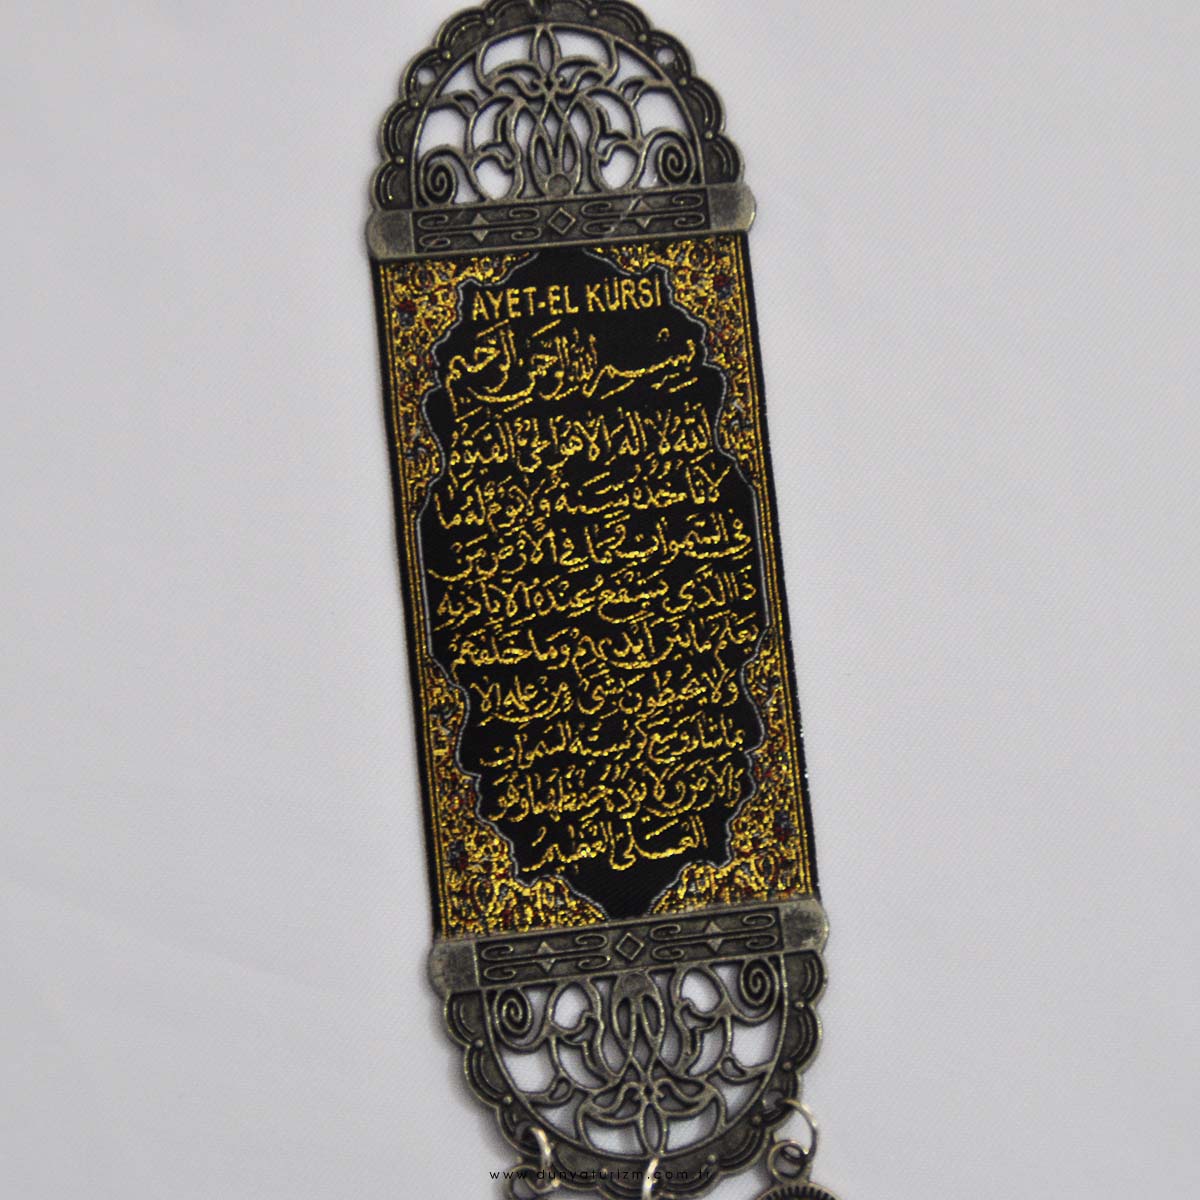 AYET-EL KÜRSİ
بسم الله الرحمن الرحيم
الله لا اله الا هو الحي القيوم
لا تأخذه سنة ولا نوم له ما
في السموات وما في الأرض من
ذا الذي يشفع عنده الا باذنه
يعلم ما بين ايديهم وما خلفهم
ولا يحيطون بشئ من علمه الا
بما شاء وسع كرسيه السموات
والارض ولا يؤده حفظهما وهو
العلي العظيم
www.dunyaturizm.com.tr